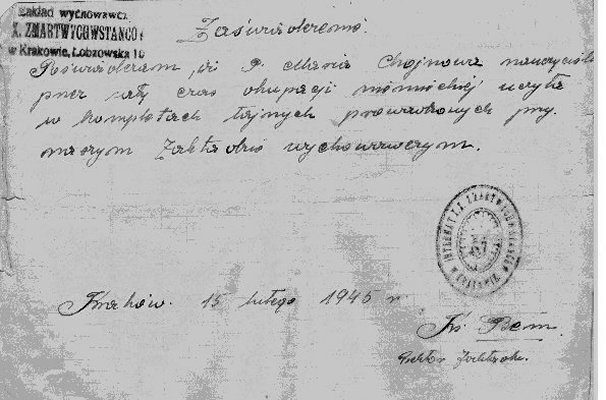 Zakład wychowawcz.
X. ZMARTWYCHWSTAŃCÓW
w Krakowie, Łobzowska 10
Zaświadczenie.
Poświadczam, iż P. Maria Chojnowa nauczyciel
przez cały czas okupacji niemieckiej uczyła
w kompletach tajnych prowadzonych przy
naszym Zakładzie wychowawczym.
INTERNAT X.X. ZMARTWYCHWSTAŃCÓW
W KRAKOWIE
Kraków. 15 lutego 1945 r.
Ks. Bem.
Rektor Zakładu.